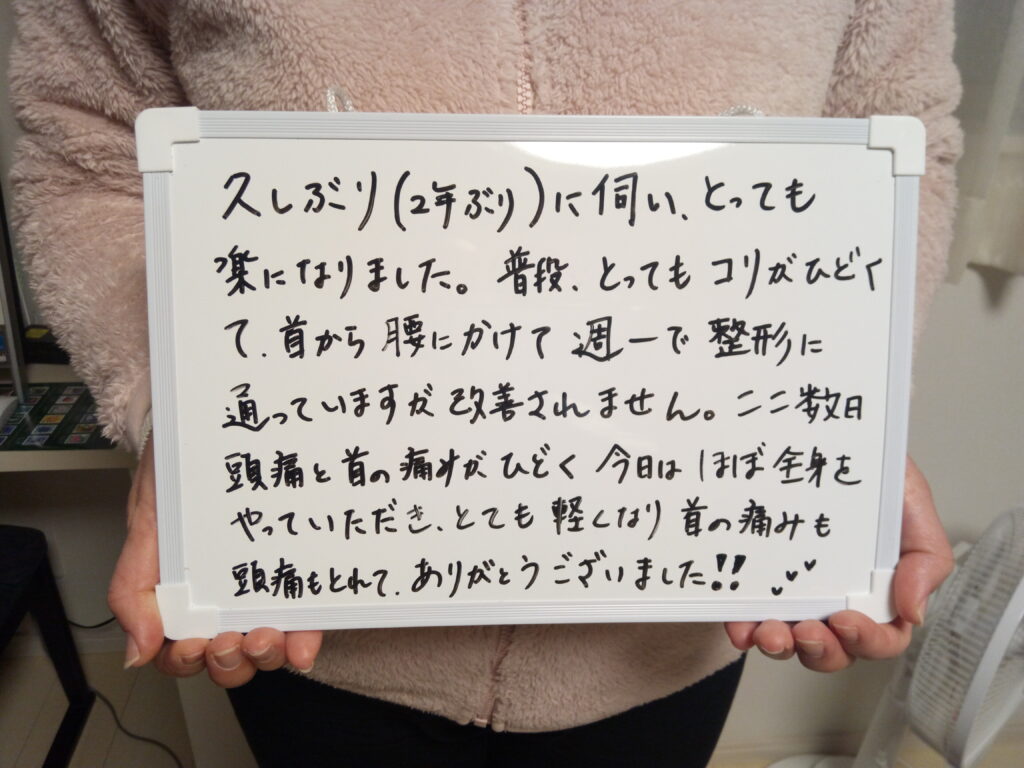 久しぶり(2年ぶり)に伺い、とっても
楽になりました。普段、とってもコリがひどく
て、首から腰にかけて週一で整形に
通っていますが改善されません。ここ数日
頭痛と首の痛みがひどく今日はほぼ全身を
やっていただき、とても軽くなり首の痛みも
頭痛もとれて、ありがとうございました!!